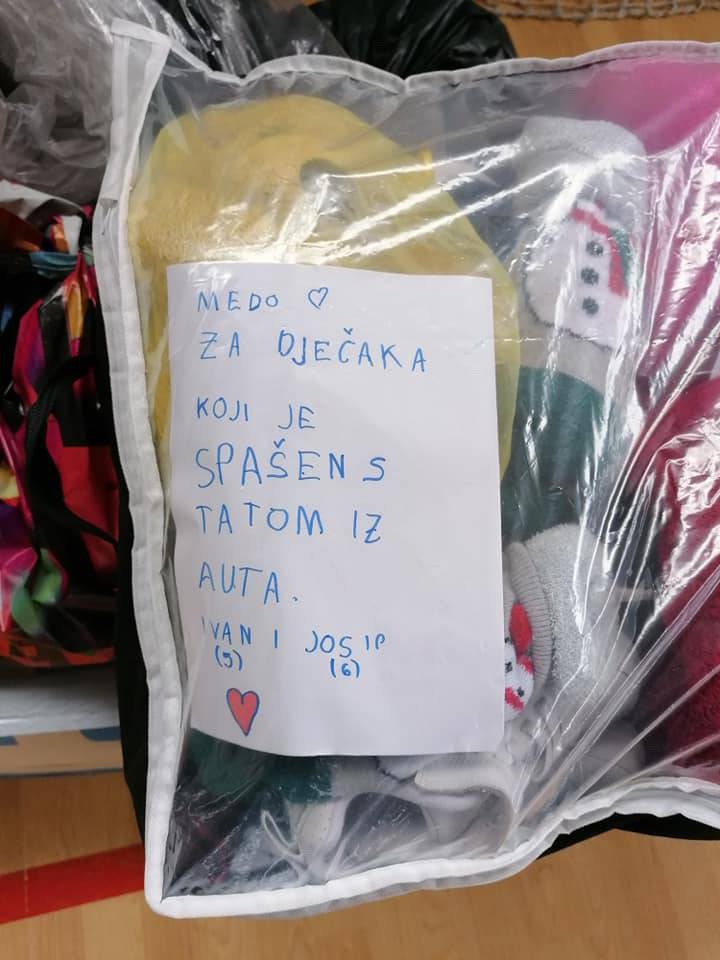 MEDO ♡
ZA DJEČAKA
KOJI JE
SPAŠEN S
TATOM IZ
AUTA.
IVAN I JOSIP
(5) (6)